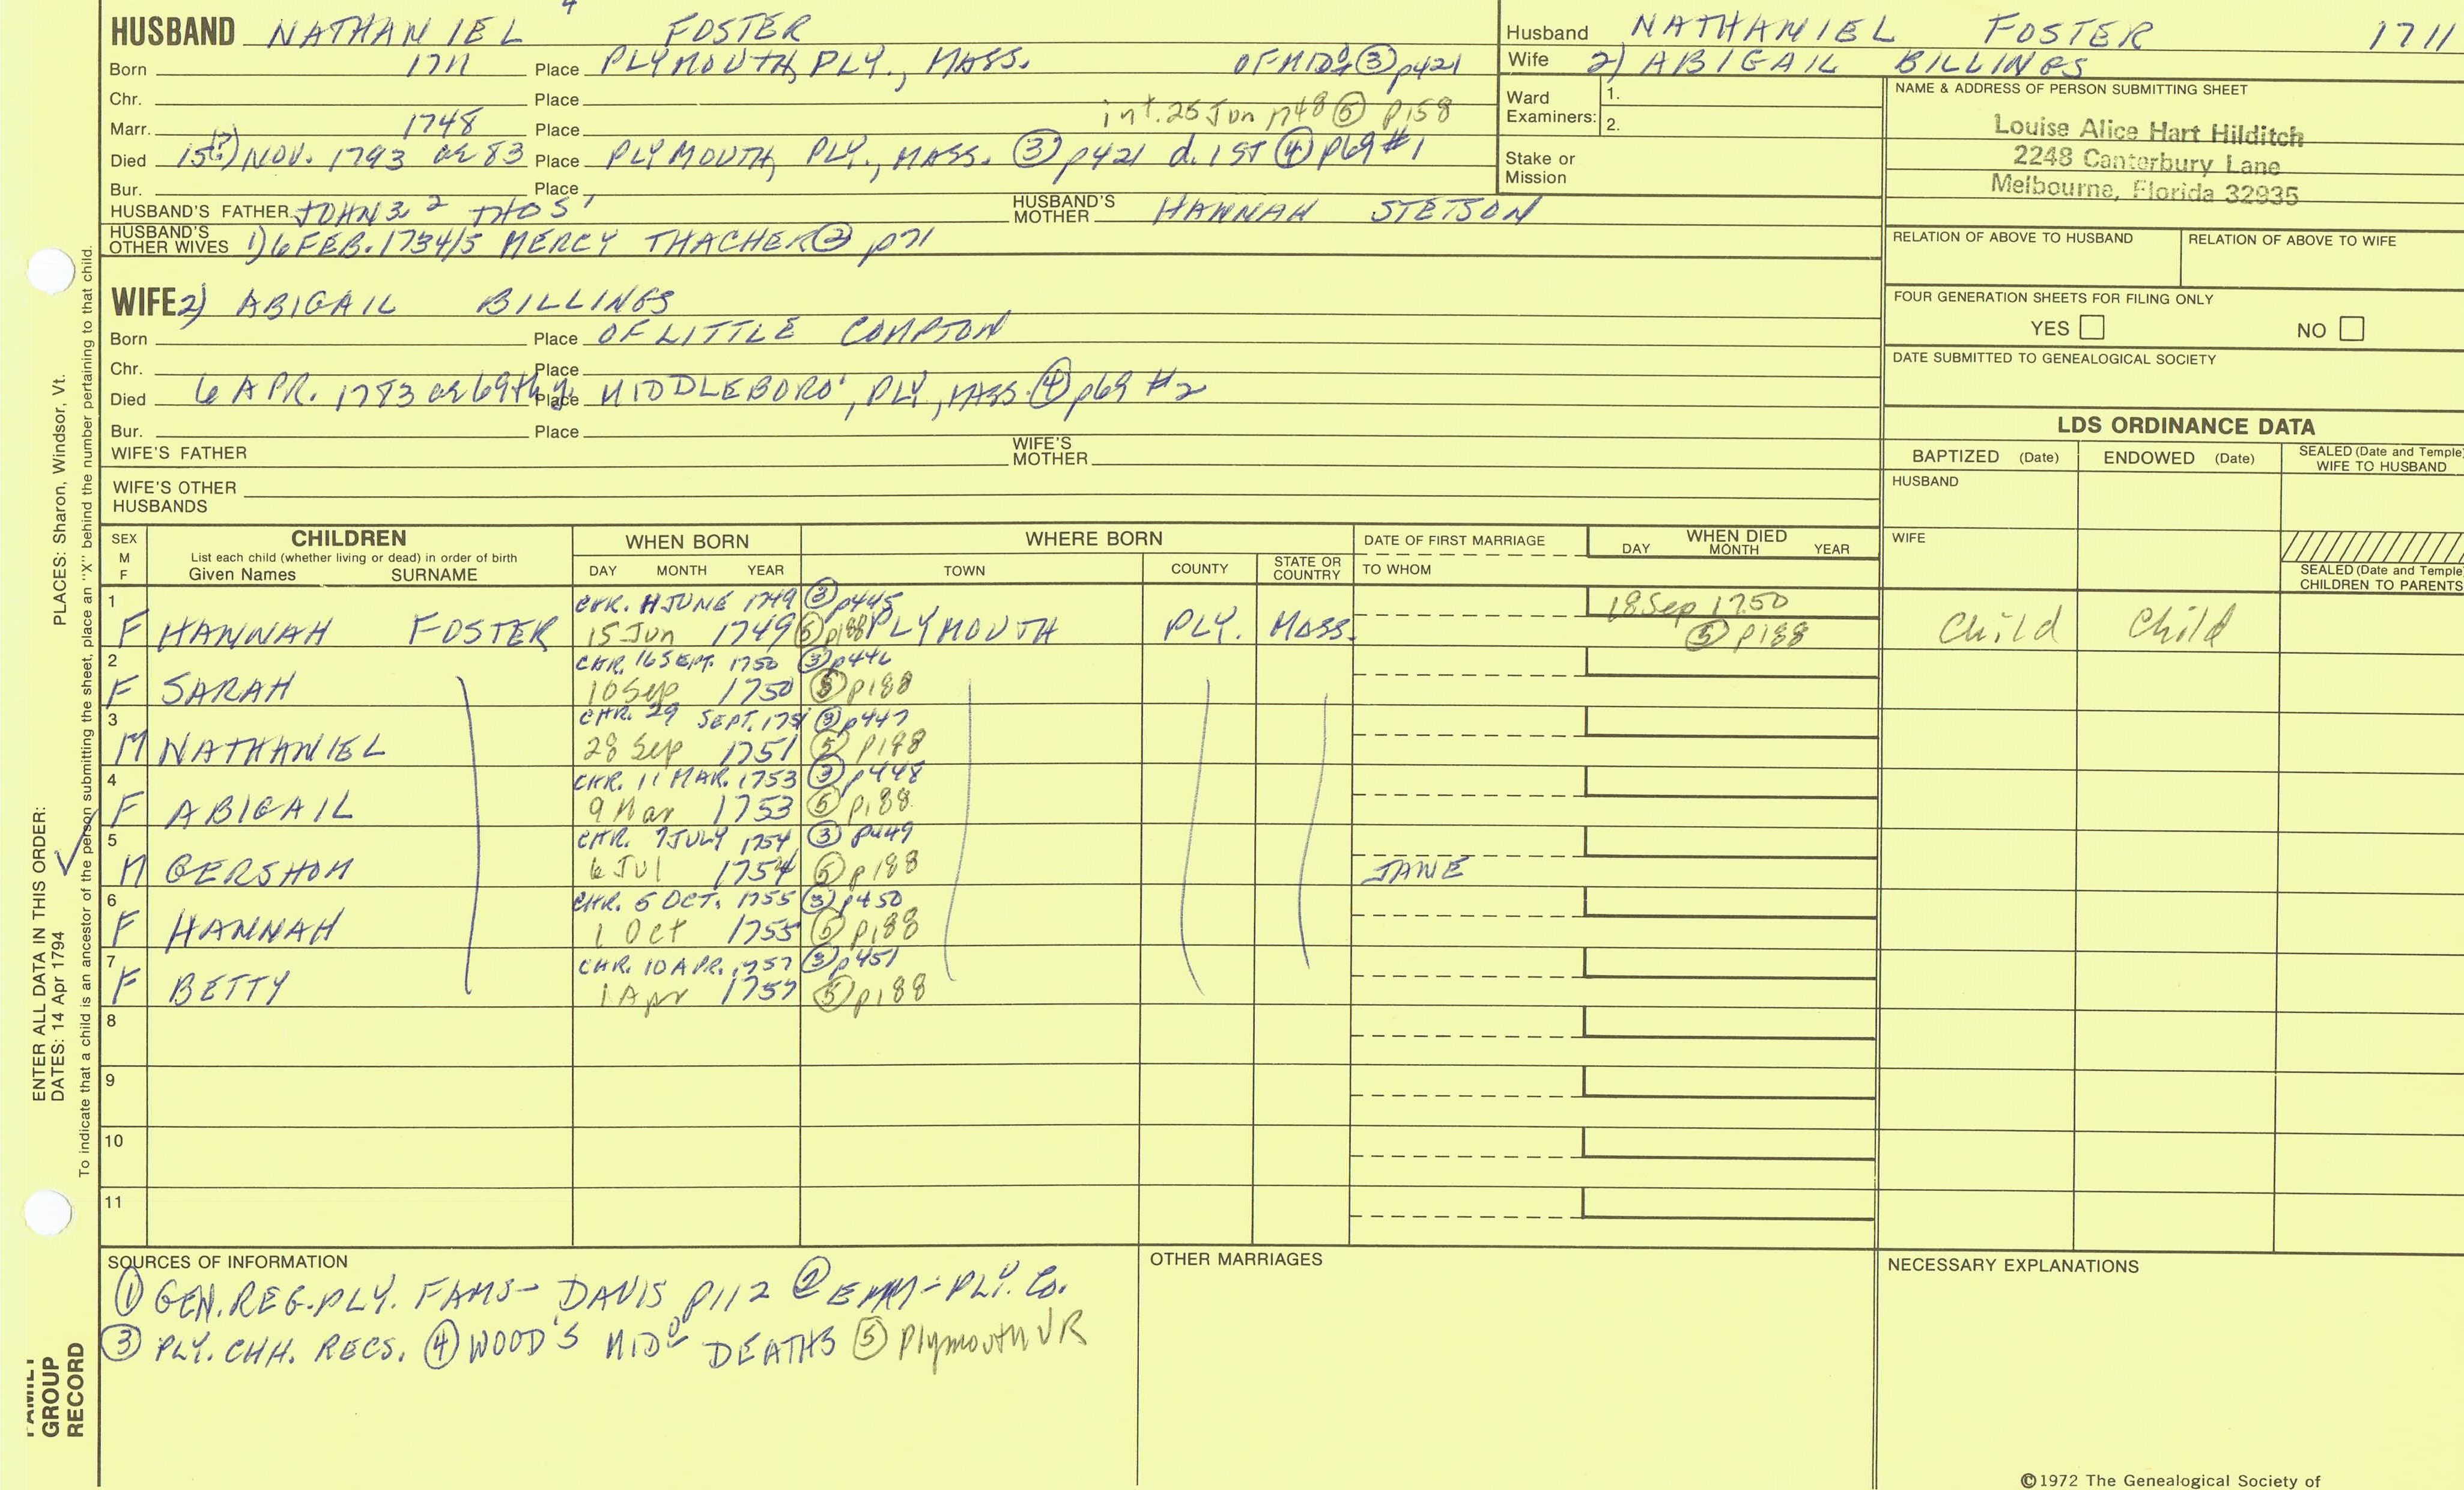 4
HUSBAND NATHANIEL FOSTER
Born 1711 Place PLYMOUTH, PLY., MASS. OF MIDO ③ p421
Chr. Place
Marr. 1748 Place int. 25 Jun 1748 ⑤ p158
Died 15(?) NOV. 1793 ae 83 Place PLYMOUTH, PLY., MASS. ③ p421 d. 1ST ④ p69 #1
Bur. Place
HUSBAND'S FATHER JOHN 3 2 THOS 1 HUSBAND'S MOTHER HANNAH STETSON
HUSBAND'S OTHER WIVES 1) 6 FEB. 1734/5 MERCY THACHER ② p71
WIFE 2) ABIGAIL BILLINGS
Born Place OF LITTLE COMPTON
Chr. Place
Died 6 APR. 1783 ae 69th y. Place MIDDLEBORO', PLY, MASS. ④ p69 #2
Bur. Place
WIFE'S FATHER WIFE'S MOTHER
WIFE'S OTHER HUSBANDS
Husband NATHANIEL FOSTER 1711
Wife 2) ABIGAIL BILLINGS
Ward Examiners: 1.
2.
Stake or Mission
NAME & ADDRESS OF PERSON SUBMITTING SHEET
Louise Alice Hart Hilditch
2248 Canterbury Lane
Melbourne, Florida 32935
RELATION OF ABOVE TO HUSBAND RELATION OF ABOVE TO WIFE
FOUR GENERATION SHEETS FOR FILING ONLY
YES NO
DATE SUBMITTED TO GENEALOGICAL SOCIETY
LDS ORDINANCE DATA
BAPTIZED (Date) ENDOWED (Date) SEALED (Date and Temple) WIFE TO HUSBAND
HUSBAND
WIFE
SEALED (Date and Temple) CHILDREN TO PARENTS
SEX M F CHILDREN WHEN BORN WHERE BORN DATE OF FIRST MARRIAGE WHEN DIED
List each child (whether living or dead) in order of birth
Given Names SURNAME DAY MONTH YEAR TOWN COUNTY STATE OR COUNTRY TO WHOM DAY MONTH YEAR
1 CHR. JUNE 1749 ③ p445 18 Sep 1750
F HANNAH FOSTER 15 Jun 1749 ⑤ p188 PLYMOUTH PLY. MASS. ⑤ p188 Child Child
2 CHR. 16 SEPT. 1750 ③ p446
F SARAH 10 Sep 1750 ⑤ p188
3 CHR. 29 SEPT. 1751 ③ p447
M NATHANIEL 28 Sep 1751 ⑤ p188
4 CHR. 11 MAR. 1753 ③ p448
F ABIGAIL 9 Mar 1753 ⑤ p188
5 CHR. 7 JULY 1754 ③ p449
M GERSHOM 6 Jul 1754 ⑤ p188 JANE
6 CHR. 5 OCT. 1755 ③ p450
F HANNAH 1 Oct 1755 ⑤ p188
7 CHR. 10 APR. 1757 ③ p451
F BETTY 1 Apr 1757 ⑤ p188
8
9
10
11
SOURCES OF INFORMATION
① GEN. REG. PLY. FAMS - DAVIS p112 ② EMM = PLY. Co.
③ PLY. CHH. RECS. ④ WOOD'S MIDO DEATHS ⑤ Plymouth VR
OTHER MARRIAGES
NECESSARY EXPLANATIONS
©1972 The Genealogical Society of
ENTER ALL DATA IN THIS ORDER:
DATES: 14 Apr 1794 PLACES: Sharon, Windsor, Vt.
To indicate that a child is an ancestor of the person submitting the sheet, place an "X" behind the number pertaining to that child.
FAMILY
GROUP
RECORD